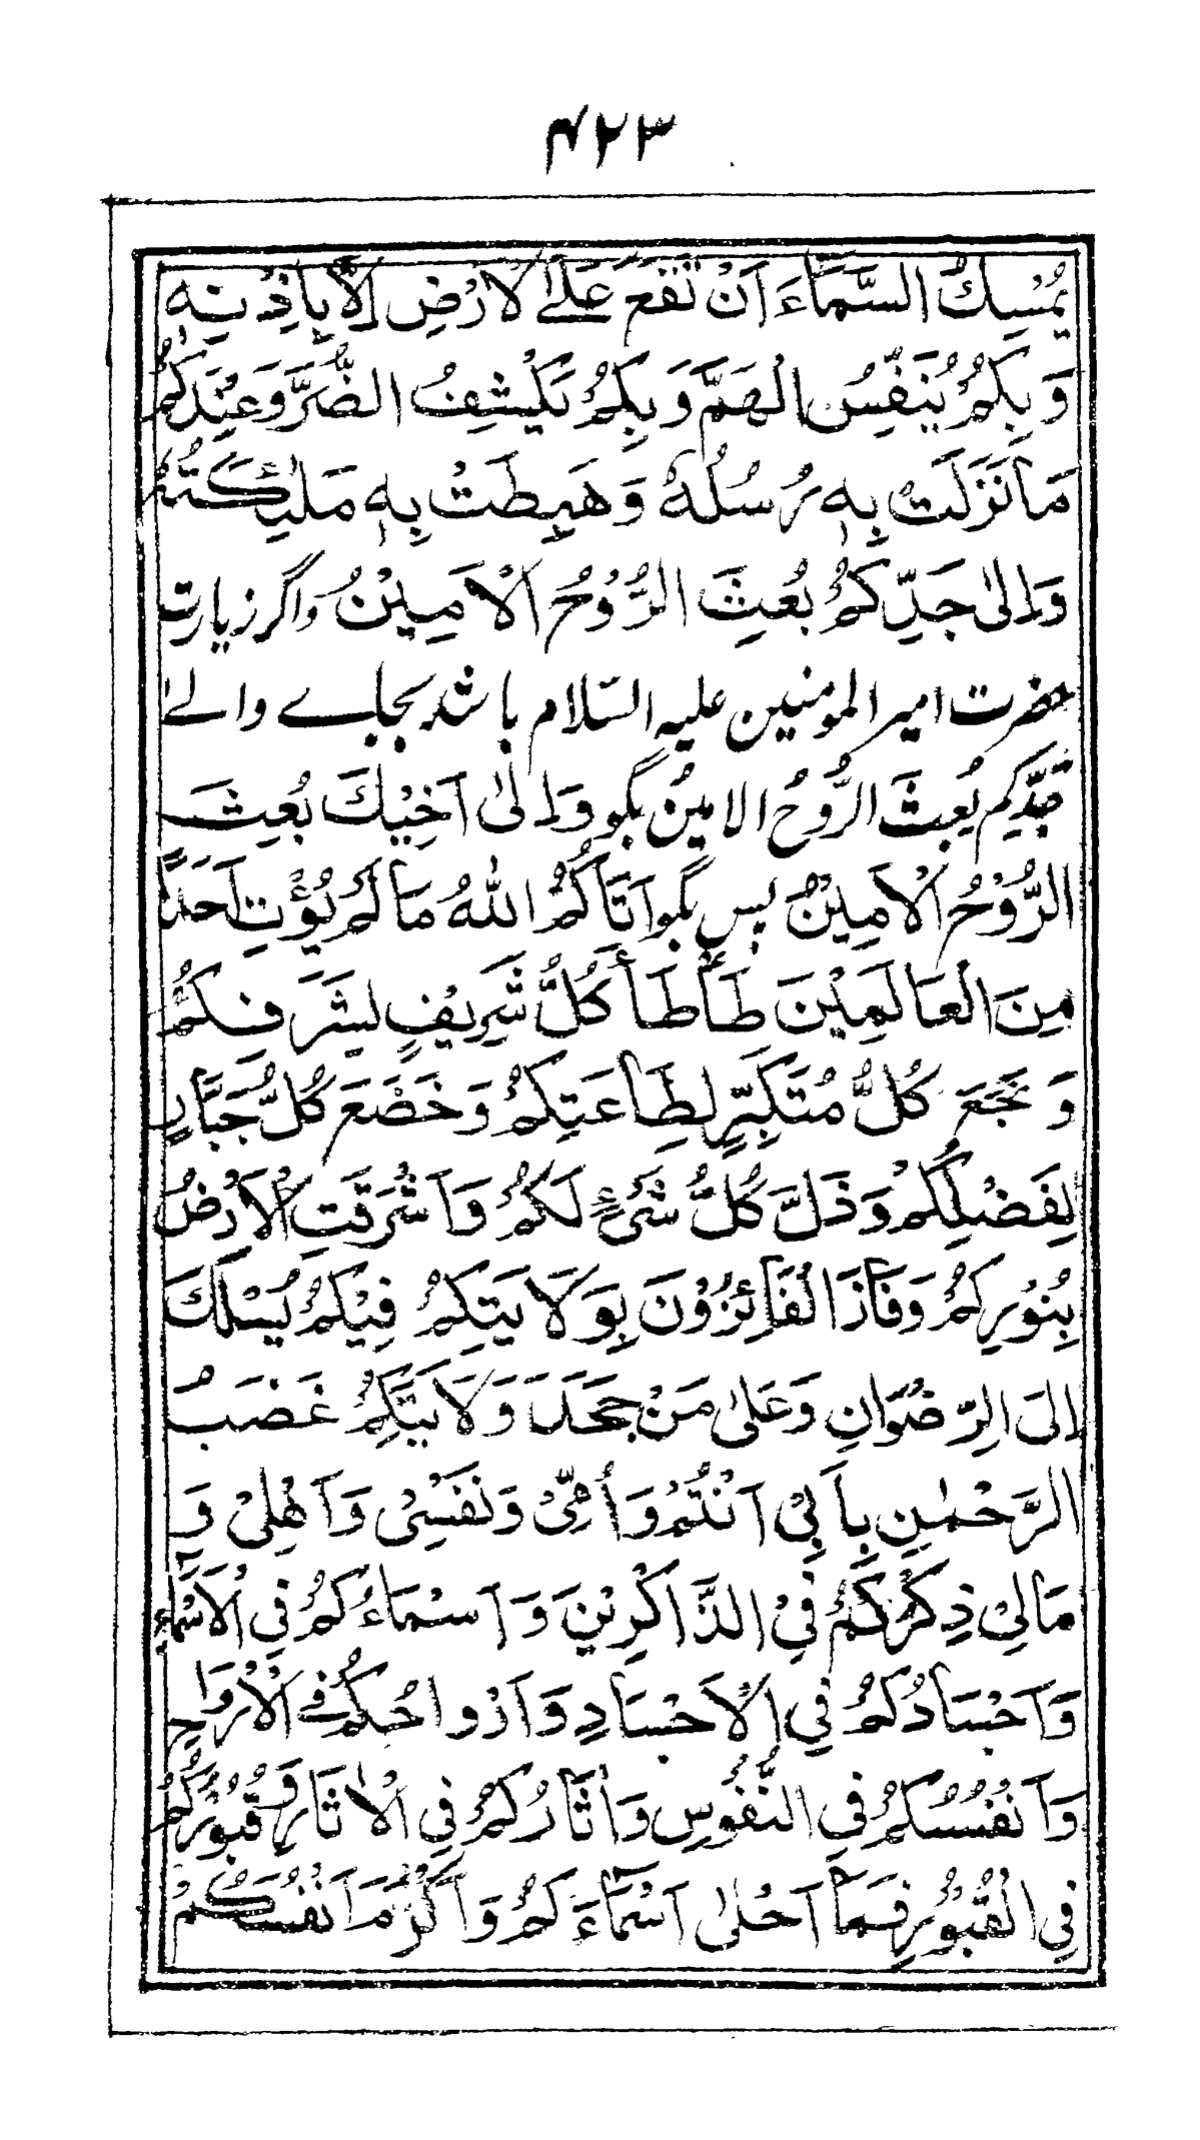 ۴۲۳
يُمْسِكُ السَّمَاءَ اَنْ تَقَعَ عَلَى الْاَرْضِ اِلَّا بِاِذْنِهٖ
وَبِكُمْ يُنَفِّسُ الْهَمَّ وَبِكُمْ يَكْشِفُ الضُّرَّ وَعِنْدَكُمْ
مَا نَزَلَتْ بِهٖ رُسُلُهُ وَهَبِطَتْ بِهٖ مَلٰئِكَتُهُ
وَاِلٰى جَدِّكُمْ بُعِثَ الرُّوْحُ الْاَمِيْنُ واگر زیارت
حضرت امیر المومنین علیه السّلام باشد بجاے والے
جَدِّكُمْ بُعِثَ الرُّوحُ الامينُ بگو وَاِلٰى اَخِيْكَ بُعِثَ
الرُّوْحُ الْاَمِيْنُ پس بگو اٰتَاكُمُ اللّٰهُ مَا لَمْ يُؤْتِ اَحَدًا
مِنَ الْعَالَمِيْنَ طَأْطَأَ كُلُّ شَرِيْفٍ لِشَرَفِكُمْ
وَ نَجَعَ كُلُّ مُتَكَبِّرٍ لِطَاعَتِكُمْ وَخَضَعَ كُلُّ جَبَّارٍ
لِفَضْلِكُمْ وَذَلَّ كُلُّ شَيْءٍ لَكُمْ وَاَشْرَقَتِ الْاَرْضُ
بِنُوْرِكُمْ وَفَازَ الْفَائِزُوْنَ بِوَلَايَتِكُمْ فِيْكُمْ يُسْلَكُ
اِلَى الرِّضْوَانِ وَعَلٰى مَنْ جَحَدَ وَلَايَتَكُمْ غَضَبُ
الرَّحْمٰنِ بِاَبِيْ اَنْتُمْ وَاُمِّيْ وَنَفْسِيْ وَاَهْلِيْ وَ
مَالِيْ ذِكْرُكُمْ فِيْ الذَّاكِرِيْنَ وَاَسْمَاءُكُمْ فِي الْاَسْمَاءِ
وَاَجْسَادُكُمْ فِي الْاَجْسَادِ وَاَرْواحُكُمْ فِي الْاَرْوَاحِ
وَاَنْفُسُكُمْ فِي النُّفُوْسِ وَاٰثَارُكُمْ فِي الْاٰثَارِ وَقُبُوْرُكُمْ
فِي الْقُبُوْرِ فَمَا اَحْلٰى اَسْمَاءَكُمْ وَاَكْرَمَ اَنْفُسَكُمْ